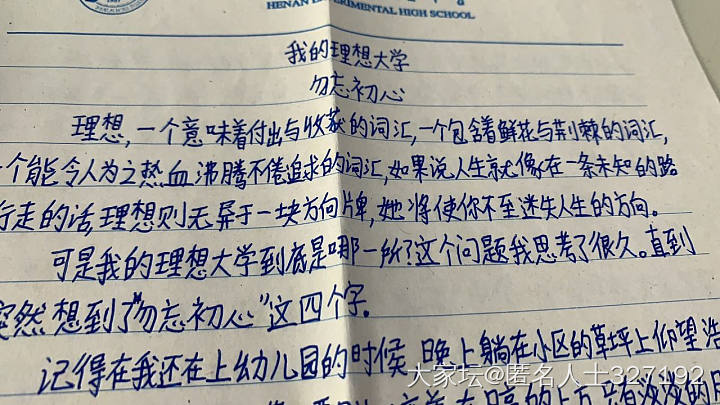 HENAN EXPERIMENTAL HIGH SCHOOL
我的理想大学
勿忘初心
理想,一个意味着付出与收获的词汇,一个包含着鲜花与荆棘的词汇,
个能令人为之热血沸腾不倦追求的词汇,如果说人生就像在一条未知的路
行走的话,理想则无异于一块方向牌,她将使你不至迷失人生的方向。
可是我的理想大学到底是哪一所?这个问题我思考了很久。直到
突然想到了"勿忘初心"这四个字。
记得在我还在上幼儿园的时候,晚上躺在小区的草坪上仰望浩
大家坛@匿名人士327192